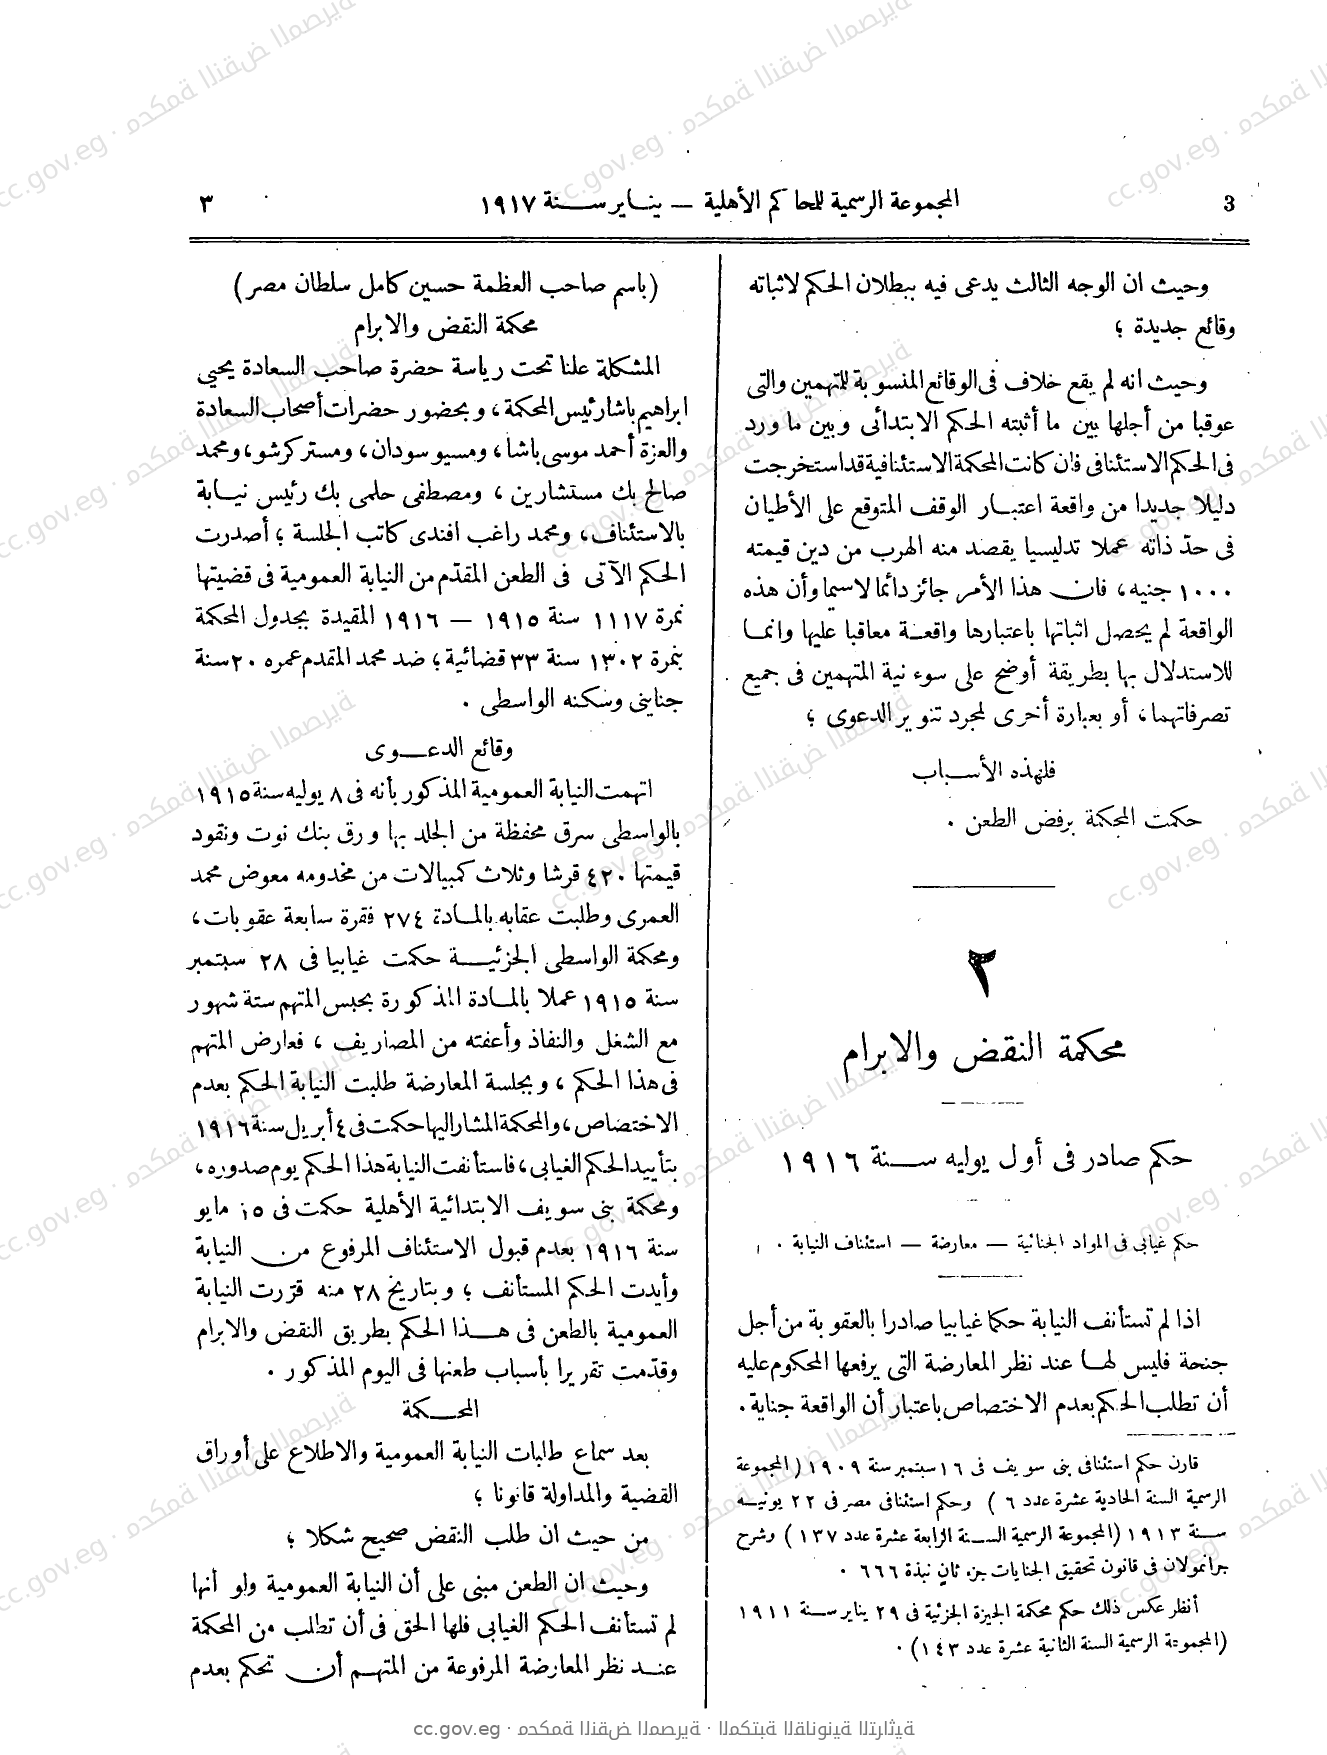 3
المجموعة الرسمية للمحاكم الأهلية — ينـاير سـنة ١٩١٧
٣
وحيث ان الوجه الثالث يدعى فيه ببطلان الحكم لاثباته
وقائع جديدة ؛
وحيث انه لم يقع خلاف فى الوقائع المنسوبة للمتهمين والتى
عوقبا من أجلها بين ما أثبته الحكم الابتدائى وبين ما ورد
فى الحكم الاستئنافى فان كانت المحكمة الاستئنافية قد استخرجت
دليلا جديدا من واقعة اعتبـار الوقف المتوقع على الأطيان
فى حدّ ذاته عملا تدليسيا يقصد منه الهرب من دين قيمته
١٠٠٠ جنيه، فان هذا الأمر جائز دائما لاسيما وأن هذه
الواقعة لم يحصل اثباتها باعتبارها واقعـة معاقبا عليها وانمـا
للاستدلال بها بطريقة أوضح على سوء نية المتهمين فى جميع
تصرفاتهما، أو بعبارة أخرى لمجرد تنوير الدعوى ؛
فلهذه الأسـباب
حكمت المحكمة برفض الطعن .
٣
محكمة النقض والابرام
حكم صادر فى أول يوليه سـنة ١٩١٦
حكم غيابى فى المواد الجنائية — معارضة — استئناف النيابة .
اذا لم تستأنف النيابة حكما غيابيا صادرا بالعقوبة من أجل
جنحة فليس لهـا عند نظر المعارضة التى يرفعها المحكوم عليه
أن تطلب الحكم بعدم الاختصاص باعتبار أن الواقعة جناية .
قارن حكم استئنافى بنى سويف فى ١٦ سبتمبر سنة ١٩٠٩ (المجموعة
الرسمية السنة الحادية عشرة عدد ٦ ) وحكم استئنافى مصر فى ٢٢ يونيـه
سـنة ١٩١٣ (المجموعة الرسمية السـنة الرابعة عشرة عدد ١٣٧ ) وشرح
جرانمولان فى قانون تحقيق الجنايات جزء ثانٍ نبذة ٦٦٦ .
أنظر عكس ذلك حكم محكمة الجيزة الجزئية فى ٢٩ يناير سـنة ١٩١١
(المجموعة الرسمية السنة الثانية عشرة عدد ١٤٣) .
(باسم صاحب العظمة حسين كامل سلطان مصر)
محكمة النقض والابرام
المشكلة علنا تحت رياسة حضرة صاحب السعادة يحيى
ابراهيم باشا رئيس المحكمة، وبحضور حضرات أصحاب السعادة
والعزة أحمد موسى باشا، ومسيو سودان، ومستر كرشو، ومحمد
صالح بك مستشارين ، ومصطفى حلمى بك رئيس نيـابة
بالاستئناف، ومحمد راغب افندى كاتب الجلسة ؛ أصدرت
الحكم الآتى فى الطعن المقدّم من النيابة العمومية فى قضيتها
نمرة ١١١٧ سنة ١٩١٥ — ١٩١٦ المقيدة بجدول المحكمة
بنمرة ١٣٠٢ سنة ٣٣ قضائية ؛ ضد محمد المقدم عمره ٢٠ سنة
جناينى وسكنه الواسطى .
وقائع الدعـوى
اتهمت النيابة العمومية المذكور بأنه فى ٨ يوليه سنة ١٩١٥
بالواسطى سرق محفظة من الجلد بها ورق بنك نوت ونقود
قيمتها ٤٢٠ قرشا وثلاث كمبيالات من مخدومه معوض محمد
العمرى وطلبت عقابه بالمـادة ٢٧٤ فقرة سابعة عقوبات ،
ومحكمة الواسطى الجزئيـة حكمت غيابيا فى ٢٨ سبتمبر
سنة ١٩١٥ عملا بالمـادة المذكورة بحبس المتهم ستة شهور
مع الشغل والنفاذ وأعفته من المصاريف ، فعارض المتهم
فى هذا الحكم ، وبجلسة المعارضة طلبت النيابة الحكم بعدم
الاختصاص، والمحكمة المشار اليها حكمت فى ٤ أبريل سنة ١٩١٦
بتأييد الحكم الغيابى، فاستأنفت النيابة هذا الحكم يوم صدوره ،
ومحكمة بنى سويف الابتدائية الأهلية حكمت فى ١٥ مايو
سنة ١٩١٦ بعدم قبول الاستئناف المرفوع من النيابة
وأيدت الحكم المستأنف ؛ وبتاريخ ٢٨ منه قرّرت النيابة
العمومية بالطعن فى هـذا الحكم بطريق النقض والابرام
وقدّمت تقريرا بأسباب طعنها فى اليوم المذكور .
المحـكمة
بعد سماع طلبات النيابة العمومية والاطلاع على أوراق
القضية والمداولة قانونا ؛
من حيث ان طلب النقض صحيح شكلا ؛
وحيث ان الطعن مبنى على أن النيابة العمومية ولو أنها
لم تستأنف الحكم الغيابى فلها الحق فى أن تطلب من المحكمة
عنـد نظر المعارضة المرفوعة من المتهـم أن تحكم بعدم
cc.gov.eg · محكمة النقض المصرية · المكتبة القانونية التراثية